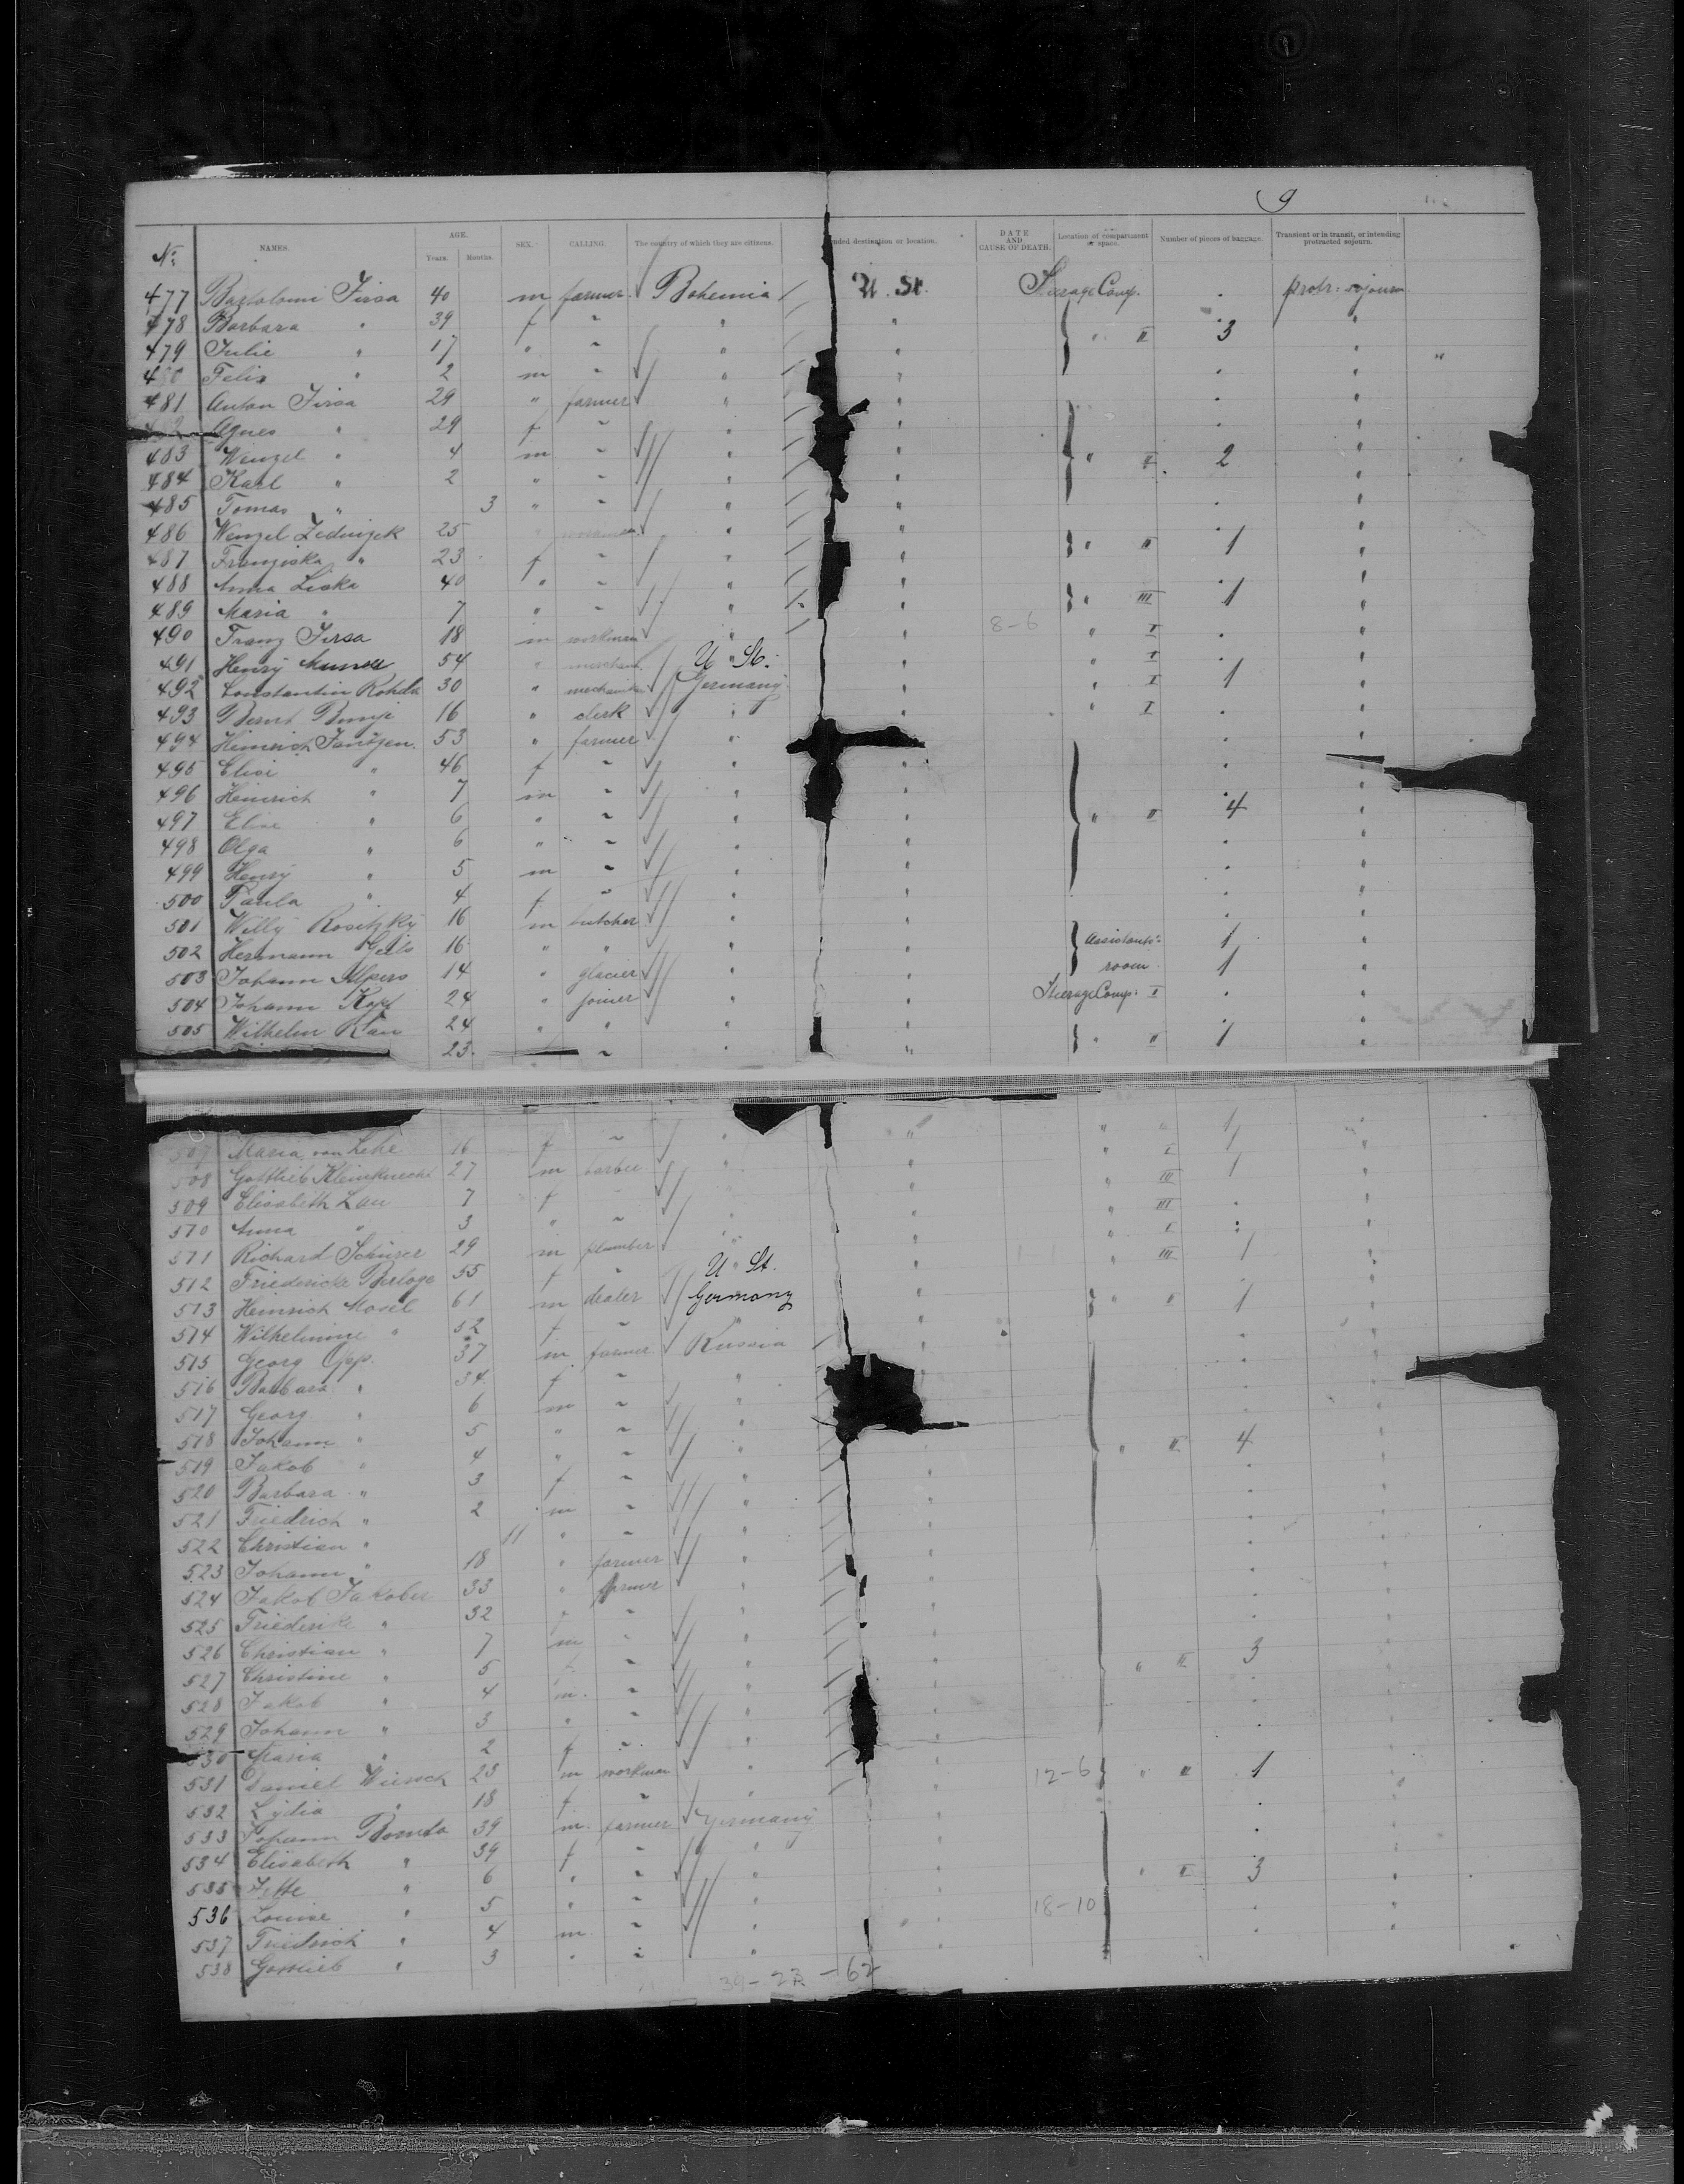 9
No. NAMES. AGE. Years. Months. SEX. CALLING. The country of which they are citizens. nded destination or location. DATE AND CAUSE OF DEATH. Location of compartment or space. Number of pieces of baggage. Transient or in transit, or intending protracted sojourn.
477 Bartolomi Jirsa 40 m farmer Bohemia U. St. Steerage Comp. protr. sojourn
478 Barbara " 39 f " " " " II 3 "
479 Julie " 17 " " " " "
480 Felix " 2 m " " " "
481 Anton Jirsa 29 " farmer " " "
Agnes " 29 f " " " "
483 Wenzel " 4 m " " " " II 2 "
484 Karl " 2 " " " " "
485 Tomas " 3 " " " " "
486 Wenzel 25 " workman " " " II 1 "
487 Franziska " 23 f " " " "
488 Anna Liska 40 " " " " " III 1 "
489 Maria " 7 " " " " "
490 Franz Jirsa 18 m workman " " 8-6 " I "
491 Henry 54 " merchant U. St. " " I "
492 Constantin Rohde 30 " Germany " " I 1 "
493 16 " clerk " " " I "
494 Heinrich 53 " farmer " " "
495 Elise " 46 f " " " "
496 Heinrich " 7 m " " " "
497 Elise " 6 " " " " " II 4 "
498 Olga " 6 " " " " "
499 Henry " 5 m " " " "
500 Paula " 4 f " " " "
501 Willy 16 m butcher " " "
502 Hermann Geils 16 " " " " Assistants' 1 "
503 Johann Alpers 14 " glacier " " room 1 "
504 Johann 24 " joiner " " Steerage Comp. I "
505 Wilhelm 24 " " " " " II 1 "
23 " " "
507 Maria von 16 f " " " " 1 "
508 Gottlieb Kleinknecht 27 m barber " " " I 1 "
509 Elisabeth Lau 7 f " " " " III 1 "
510 Anna " 3 " " " " " III "
511 Richard 29 m plumber " " " I "
512 Friedericke 55 f " U. St. " " III 1 "
513 Heinrich 61 m dealer Germany " " II 1 "
514 Wilhelmine " 52 f " " " "
515 Georg Opp. 37 m farmer Russia " "
516 Barbara " 34 f " " "
517 Georg " 6 m " " "
518 Johann " 5 " " " "
519 Jakob " 4 " " " " " II 4 "
520 Barbara " 3 f " " " "
521 Friedrich " 2 m " " " "
522 Christian " 11 " " " " "
523 Johann " 18 " farmer " " "
524 Jakob Jakober 33 " farmer " " "
525 Friederike " 32 f " " " "
526 Christian " 7 m " " " "
527 Christine " 5 f " " " " II 3 "
528 Jakob " 4 m. " " " "
529 Johann " 3 " " " " "
530 Maria " 2 f " " " "
531 Daniel 23 m workman " " 12-6 " II 1 "
532 Lydia " 18 f " " " "
533 Johann 39 m. farmer Germany " "
534 Elisabeth " 39 f " " " "
535 " 6 " " " " " II 3 "
536 Louise " 5 " " " " 18-10 "
537 Friedrich " 4 m " " " "
538 Gottlieb " 3 " " "
-62